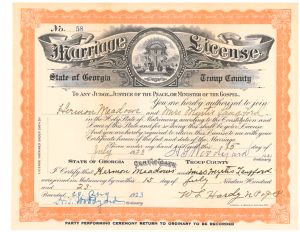 No. 58
Marriage License.
State of Georgia Troup County
TO ANY JUDGE, JUSTICE OF THE PEACE, OR MINISTER OF THE GOSPEL.
You are hereby authorized to join
Hermon Meadows and Miss Myrtis Langford
in the Holy State of Matrimony according to the Constitution and
Laws of this State and for so doing this shall be your License
And you are hereby required to return this License to me with your
Certificate hereon of the fact and date of the Marriage
Given under my hand and seal this 15 day
July 1923
STATE OF GEORGIA Certificate TROUP COUNTY
I Certify that Hermon Meadows and Miss Myrtis Langford
were joined in Matrimony by me this 15 day of July Nineteen Hundred
and 23
Recorded 1923
W. L. Hardy N.P.
PARTY PERFORMING CEREMONY RETURN TO ORDINARY TO BE RECORDED